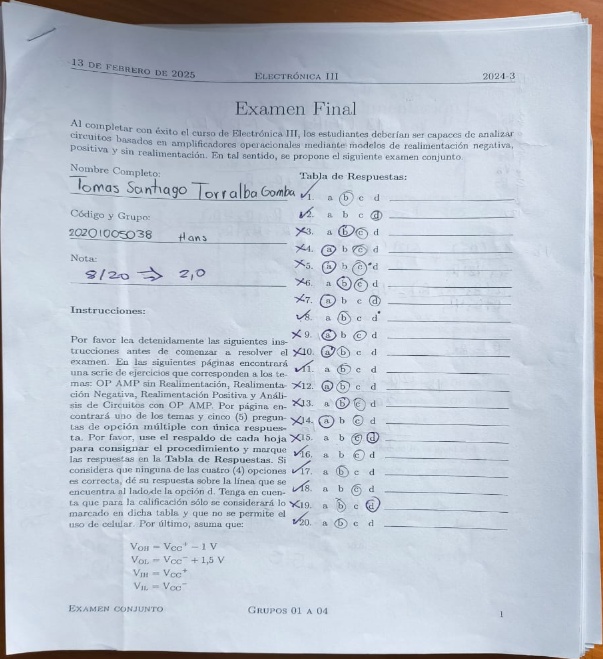 13 DE FEBRERO DE 2025 ELECTRÓNICA III 2024-3
Examen Final
Al completar con éxito el curso de Electrónica III, los estudiantes deberían ser capaces de analizar
circuitos basados en amplificadores operacionales mediante modelos de realimentación negativa,
positiva y sin realimentación. En tal sentido, se propone el siguiente examen conjunto.
Nombre Completo:
Tomas Santiago Torralba Gomba
Código y Grupo:
20201005038 Hans
Nota:
8/20 ⇒ 2,0
Instrucciones:
Por favor lea detenidamente las siguientes ins-
trucciones antes de comenzar a resolver el
examen. En las siguientes páginas encontrará
una serie de ejercicios que corresponden a los te-
mas: OP AMP sin Realimentación, Realimenta-
ción Negativa, Realimentación Positiva y Análi-
sis de Circuitos con OP AMP. Por página en-
contrará uno de los temas y cinco (5) pregun-
tas de opción múltiple con única respues-
ta. Por favor, use el respaldo de cada hoja
para consignar el procedimiento y marque
las respuestas en la Tabla de Respuestas. Si
considera que ninguna de las cuatro (4) opciones
es correcta, dé su respuesta sobre la línea que se
encuentra al lado de la opción d. Tenga en cuen-
ta que para la calificación sólo se considerará lo
marcado en dicha tabla y que no se permite el
uso de celular. Por último, asuma que:
V_OH = V_CC⁺ − 1 V
V_OL = V_CC⁻ + 1,5 V
V_IH = V_CC⁺
V_IL = V_CC⁻
Tabla de Respuestas:
✓1. a b c d
✓2. a b c d
×3. a b c d
×4. a b c d
×5. a b c d
×6. a b c d
×7. a b c d
✓8. a b c d
×9. a b c d
×10. a b c d
✓11. a b c d
×12. a b c d
×13. a b c d
×14. a b c d
×15. a b c d
✓16. a b c d
✓17. a b c d
✓18. a b c d
×19. a b c d
✓20. a b c d
EXAMEN CONJUNTO GRUPOS 01 A 04 1